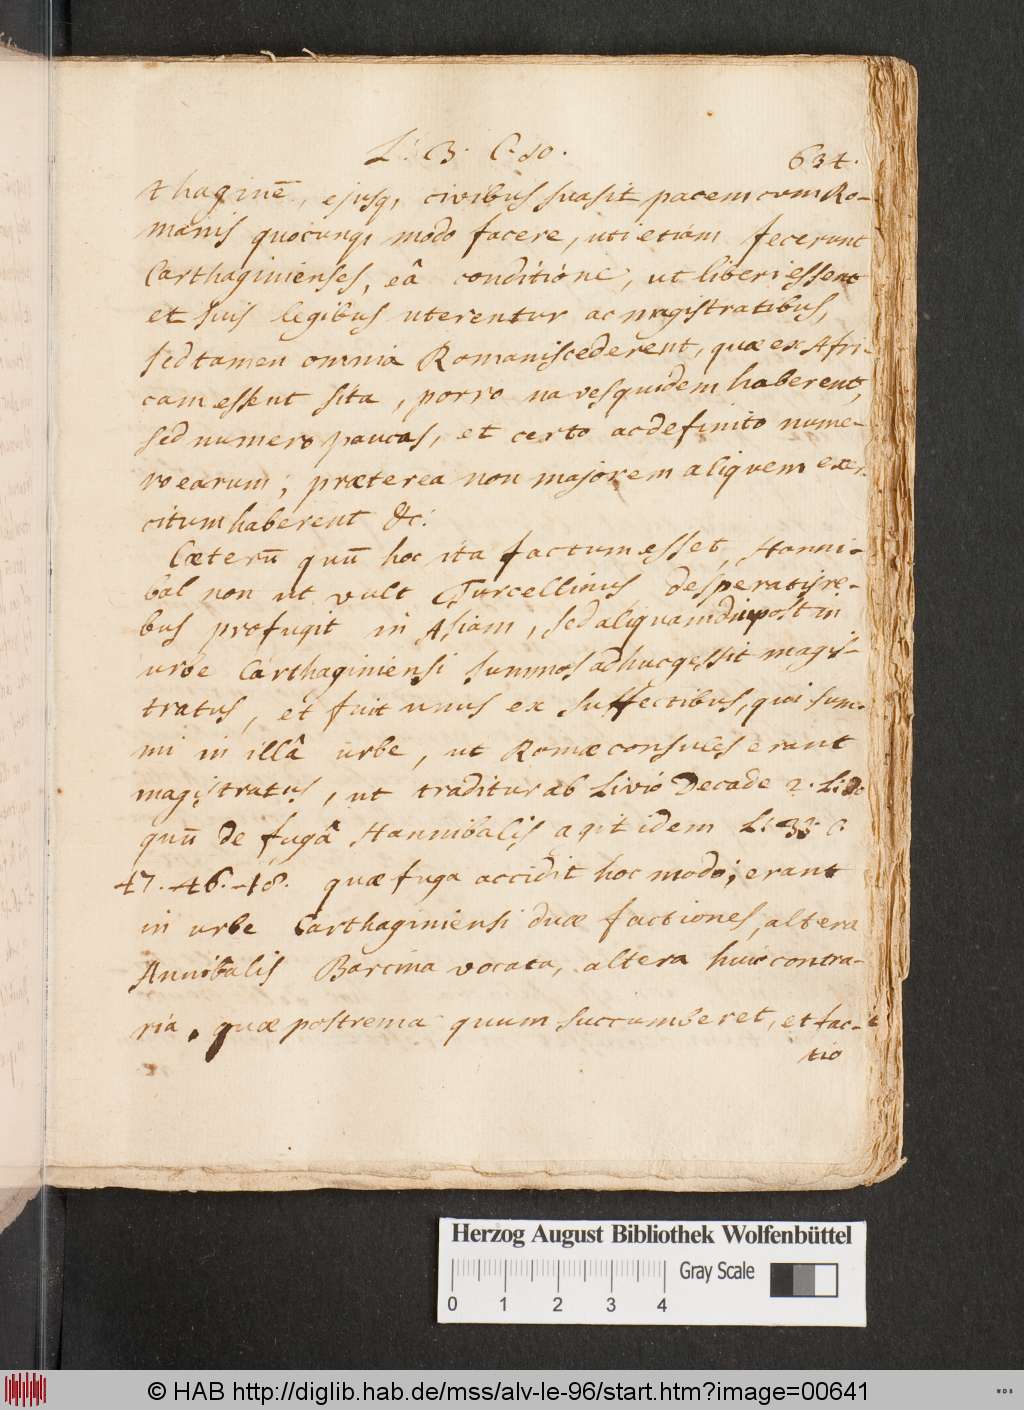 L: 3. C. 10.
634.
thaginē, ejusq, civibus suasit pacem cum Ro-
manis quocunq, modo facere, uti etiam fecerunt
Carthaginienses, eâ conditione, ut liberi essent
et suis legibus uterentur ac magistratibus,
sed tamen omnia Romanis cederent, quæ ex Afri-
cam essent sita, porro naves quidem haberent,
sed numero paucas, et certo ac definito nume-
ro earum; præterea non majorem aliquem exer-
citum haberent &c:
Cæterū quū hoc ita factum esset, Hanni-
bal non ut vult Turcellinus, desperatis re-
bus profugit in Asiam, sed aliquamdiu post in
urbe Carthaginiensi summos adhuc gessit magis-
tratus, et fuit unus ex suffectibus, qui sum-
mi in illâ urbe, ut Romæ consules erant
magistratus, ut traditur ab Livio Decade 2. L:
quū de fugâ Hannibalis agit idem L: 33 c.
47. 46. 48. quæ fuga accidit hoc modo; erant
in urbe Carthaginiensi duæ factiones, altera
Annibalis Barcina vocata, altera huic contra-
ria, quæ postrema quum succumberet, et fac-
tio
Herzog August Bibliothek Wolfenbüttel
Gray Scale
0 1 2 3 4
© HAB http://diglib.hab.de/mss/alv-le-96/start.htm?image=00641